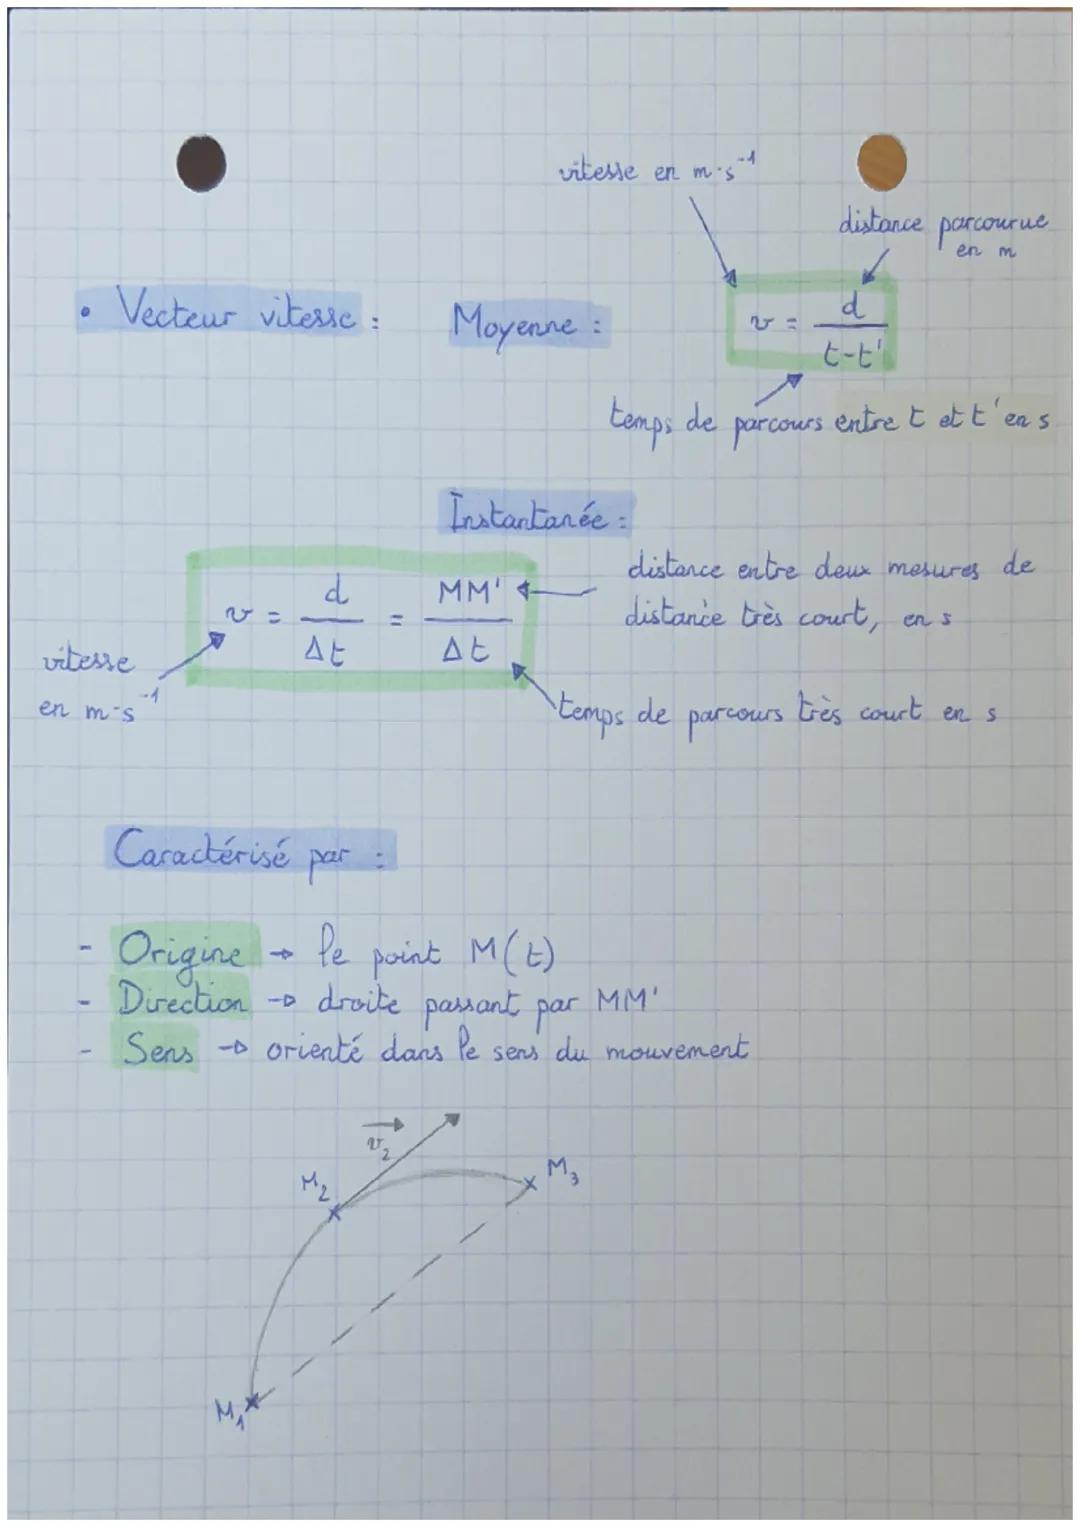 vitesse en m·s⁻¹
distance parcourue
en m
• Vecteur vitesse : Moyenne : v = d / t-t'
temps de parcours entre t et t' en s
Instantanée :
distance entre deux mesures de
distance très court, en s
v = d / Δt = MM' / Δt
vitesse
en m·s⁻¹
temps de parcours très court en s
Caractérisé par :
- Origine → le point M(t)
- Direction → droite passant par MM'
- Sens → orienté dans le sens du mouvement
v₂
M₂
M₃
M₁